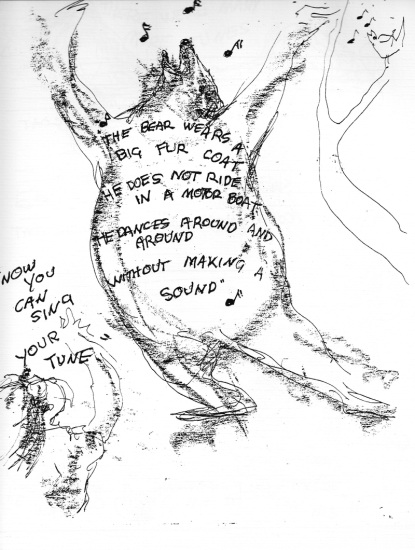 "THE BEAR WEARS A
BIG FUR COAT
HE DOES NOT RIDE
IN A MOTOR BOAT
HE DANCES AROUND AND
AROUND
WITHOUT MAKING A
SOUND"
NOW
YOU
CAN
SING
YOUR
TUNE